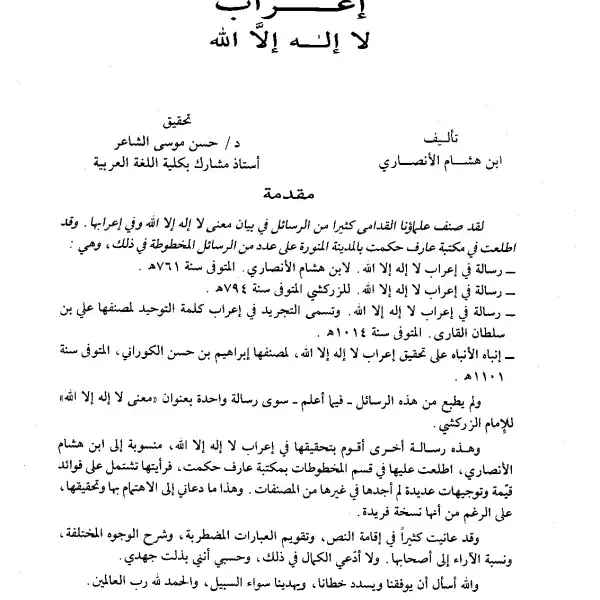 إعـــراب
لا إلـٰـه إلاَّ الله
تأليـف
ابن هشـام الأنصـاري
تحقيق
د/ حسن موسى الشاعر
أستاذ مشارك بكلية اللغة العربية
مقدمة
لقد صنف علماؤنا القدامى كثيرا من الرسائل في بيان معنى لا إله إلا الله وفي إعرابها. وقد
اطلعت في مكتبة عارف حكمت بالمدينة المنورة على عدد من الرسائل المخطوطة في ذلك، وهي :
ــ رسالة في إعراب لا إله إلا الله. لابن هشام الأنصاري. المتوفى سنة ٧٦١هـ .
ــ رسالة في إعراب لا إله إلا الله. للزركشي المتوفى سنة ٧٩٤هـ .
ــ رسالة في إعراب لا إله إلا الله. وتسمى التجريد في إعراب كلمة التوحيد لمصنفها علي بن
سلطان القارى. المتوفى سنة ١٠١٤هـ .
ــ إنباه الأنباه على تحقيق إعراب لا إله إلا الله، لمصنفها إبراهيم بن حسن الكوراني، المتوفى سنة
١١٠١هـ .
ولم يطبع من هذه الرسائل ـ فيما أعلم ـ سوى رسالة واحدة بعنوان «معنى لا إله إلا الله»
للإمام الزركشي.
وهـذه رسـالة أخـرى أقـوم بتحقيقها في إعراب لا إله إلا الله، منسوبة إلى ابن هشام
الأنصاري، اطلعت عليها في قسم المخطوطات بمكتبة عارف حكمت، فرأيتها تشتمل على فوائد
قيّمة وتوجيهات عديدة لم أجدها في غيرها من المصنفات. وهذا ما دعاني إلى الاهتمام بها وتحقيقها،
على الرغم من أنها نسخة فريدة.
وقد عانيت كثيراً في إقامة النص، وتقويم العبارات المضطربة، وشرح الوجوه المختلفة،
ونسبة الآراء إلى أصحابها. ولا أدّعي الكمال في ذلك، وحسبي أنني بذلت جهدي.
والله أسأل أن يوفقنا ويسدد خطانا، ويهدينا سواء السبيل، والحمد لله رب العالمين.